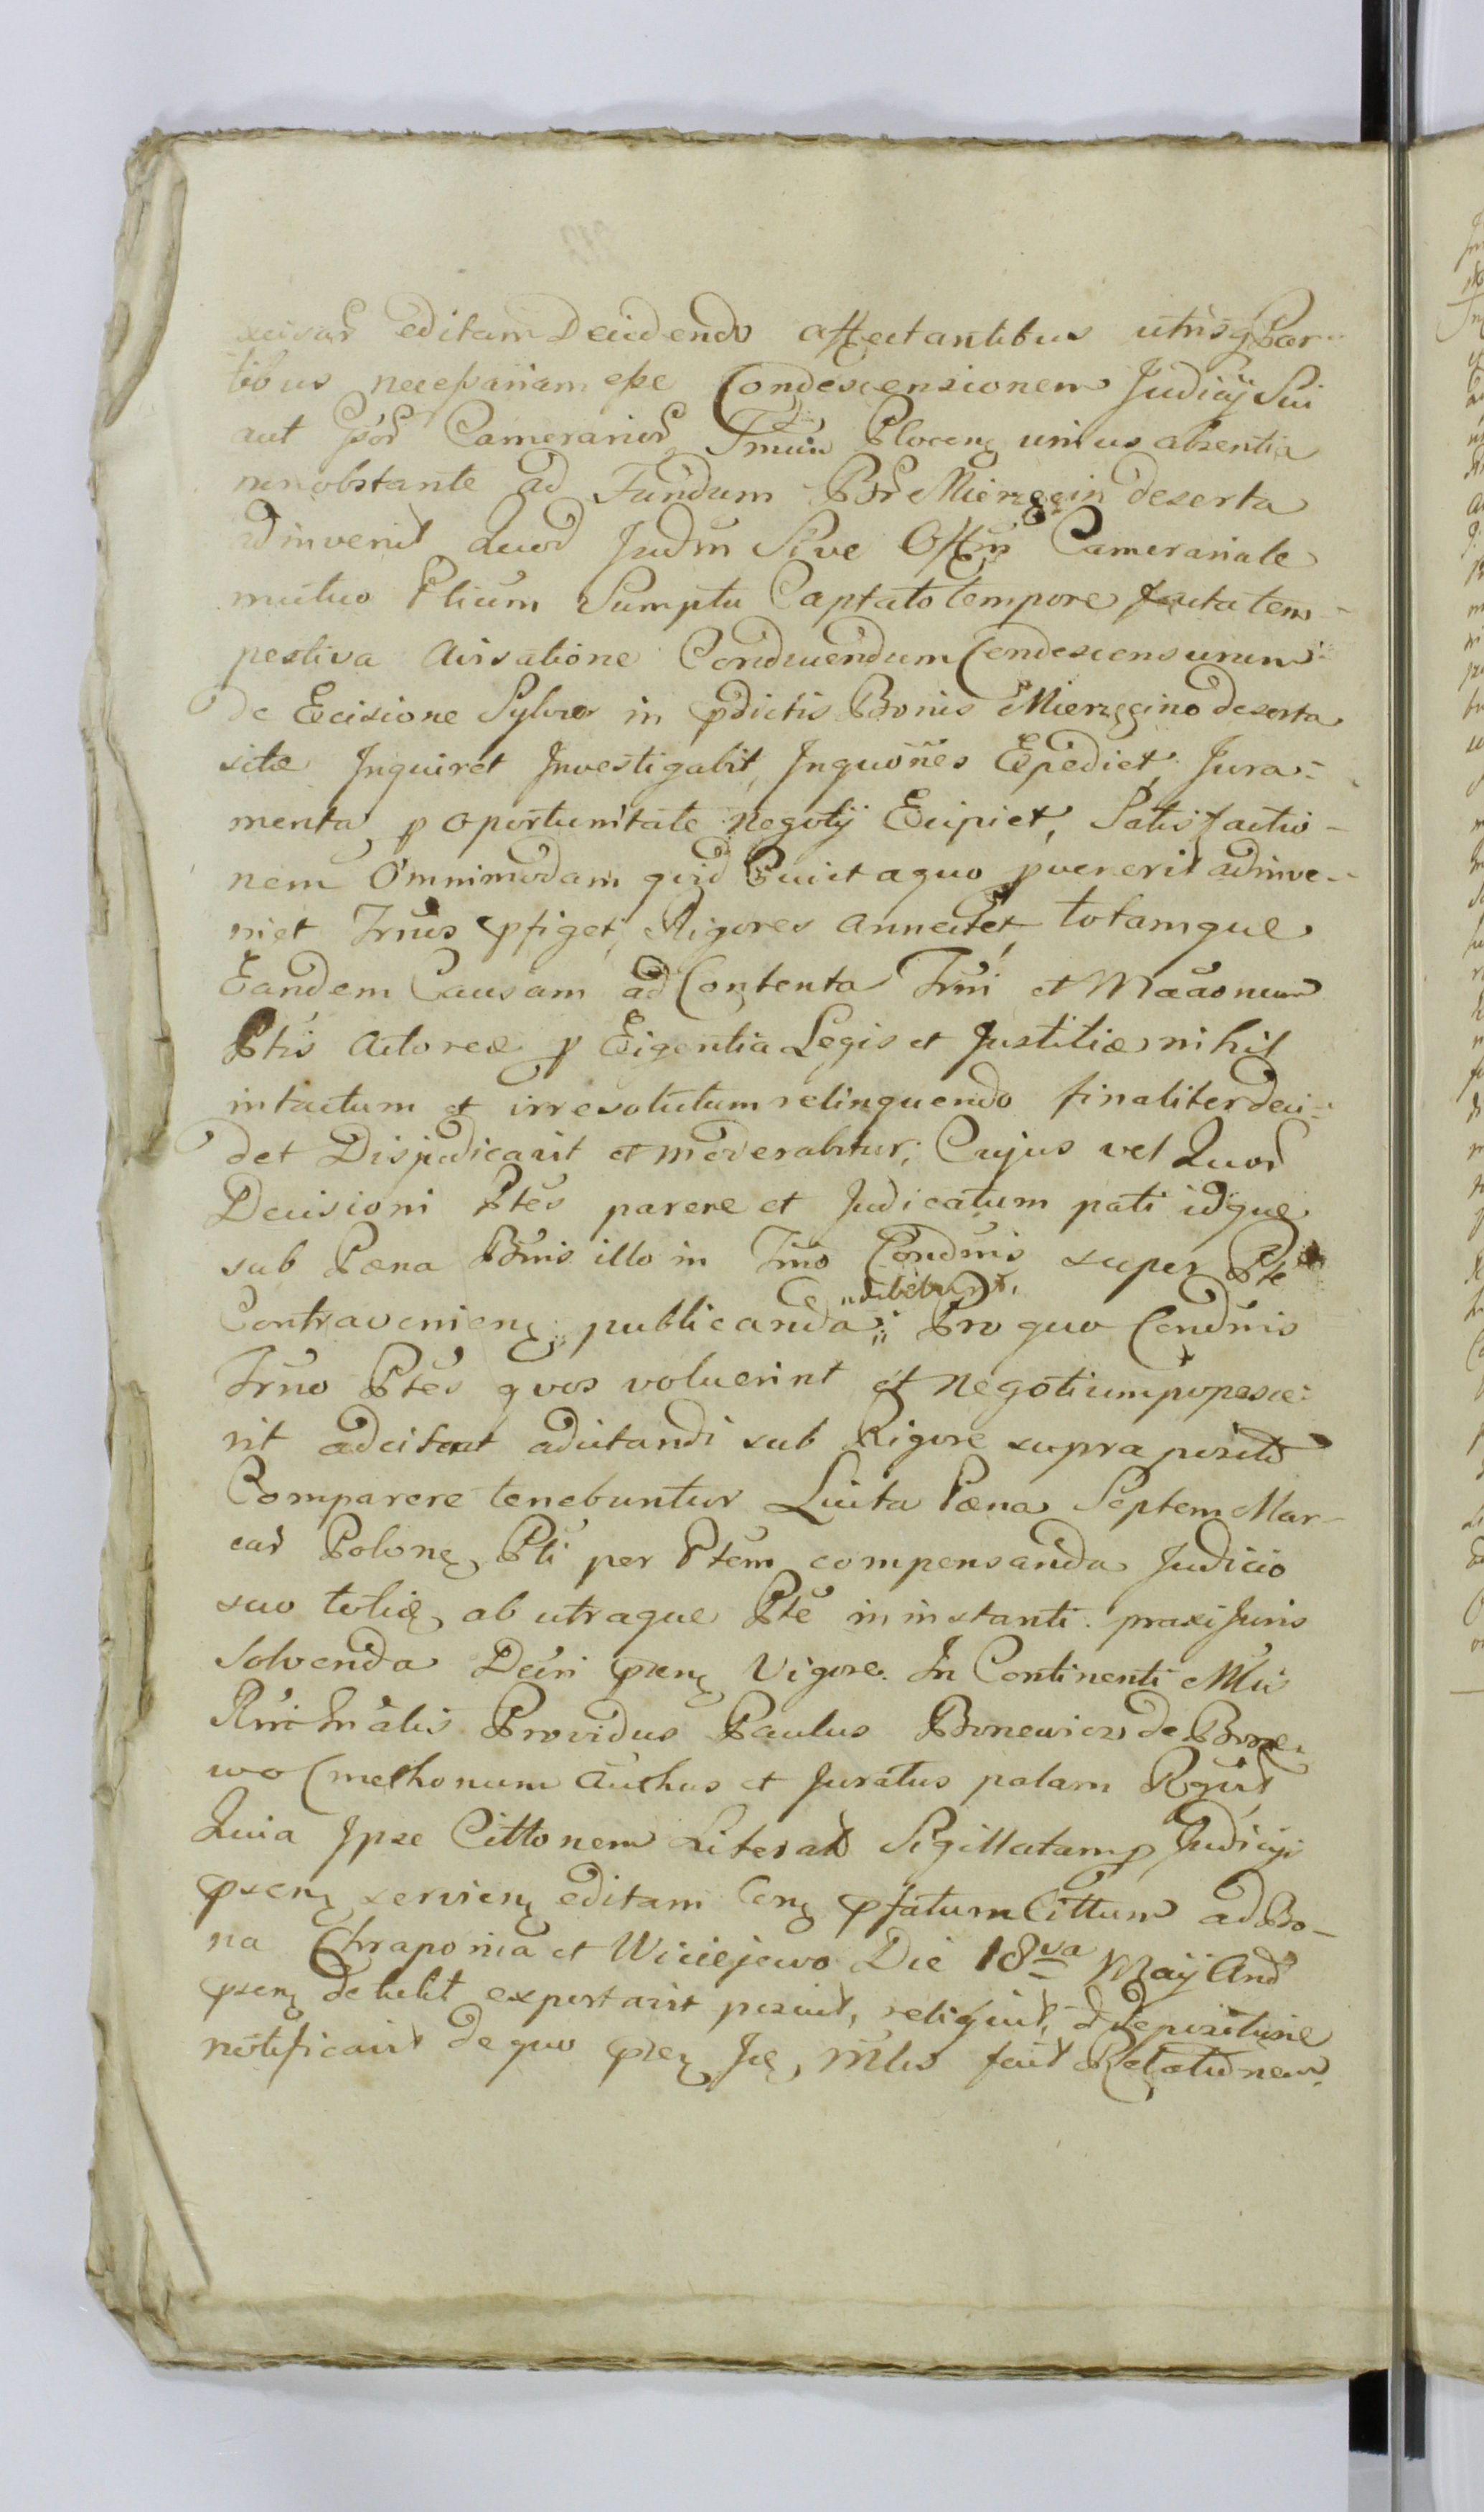 editam Decidendo affectantibus utrisq Par-
tibus necessariam esse Condescensionem Judicij Sui
aut Camerarior Plocens unius absentia
non obstante ad Fundum Bor Mierzęcin deserta
adinvenit Quod Judm Sive Offm Camerariale
mutuo Ptium Sumptu Captato tempore facta tem-
pestiva avisatione Conducendum Condescensurum
de Excisione Sylvar in pdictis Bonis Mierzęcino deserta
sitæ Inquiret Investigabit, Inquõnes Expediet, Jura-
menta p oportunitate negotij Excipiet, Satisfactio-
nem Omnimodam quid Cuict a quo pvenerit adinve-
niet Trnos pfiget, Rigores annectet, totamque
Eandem Causam ad Contenta Trni et
Ptis Actoreæ p Exigentia Legis et Justitiæ nihil
intactum et irresolutum relinquendo finaliter deci-
det Disjudicavit et moderabitur, Cujus vel Quor
Decisioni Ptes parere et Judicatum pati idque
sub Pæna Bnis illo in Tmo Condnis super Pte
debebunt
Contraveniens publicanda Pro quo Condnis
Trno Ptes quos voluerint et negotium poposce-
rit adcitent adcitandi sub Rigore supra posito
Comparere tenebuntur Luita Pæna Septem Mar-
car Polonę Pti per Ptem compensanda Judicio
suo ab utraque Pte in instanti praxi Juris
solvenda Decri psens Vigore. In Continenti
Providus Paulus Bonewicz de
wo Cmethonum et Juratus palam
Quia Ipse Cittonem Literat Sigillatam p Judicij
psens serviens editam Cons pfatum Cittum ad Bo-
na Chraponia et Wiciejewo Die 18va Maij And
psens detulit exportavit posuit, reliquit, depositione
notificavit de quo psens fecit Relationem.